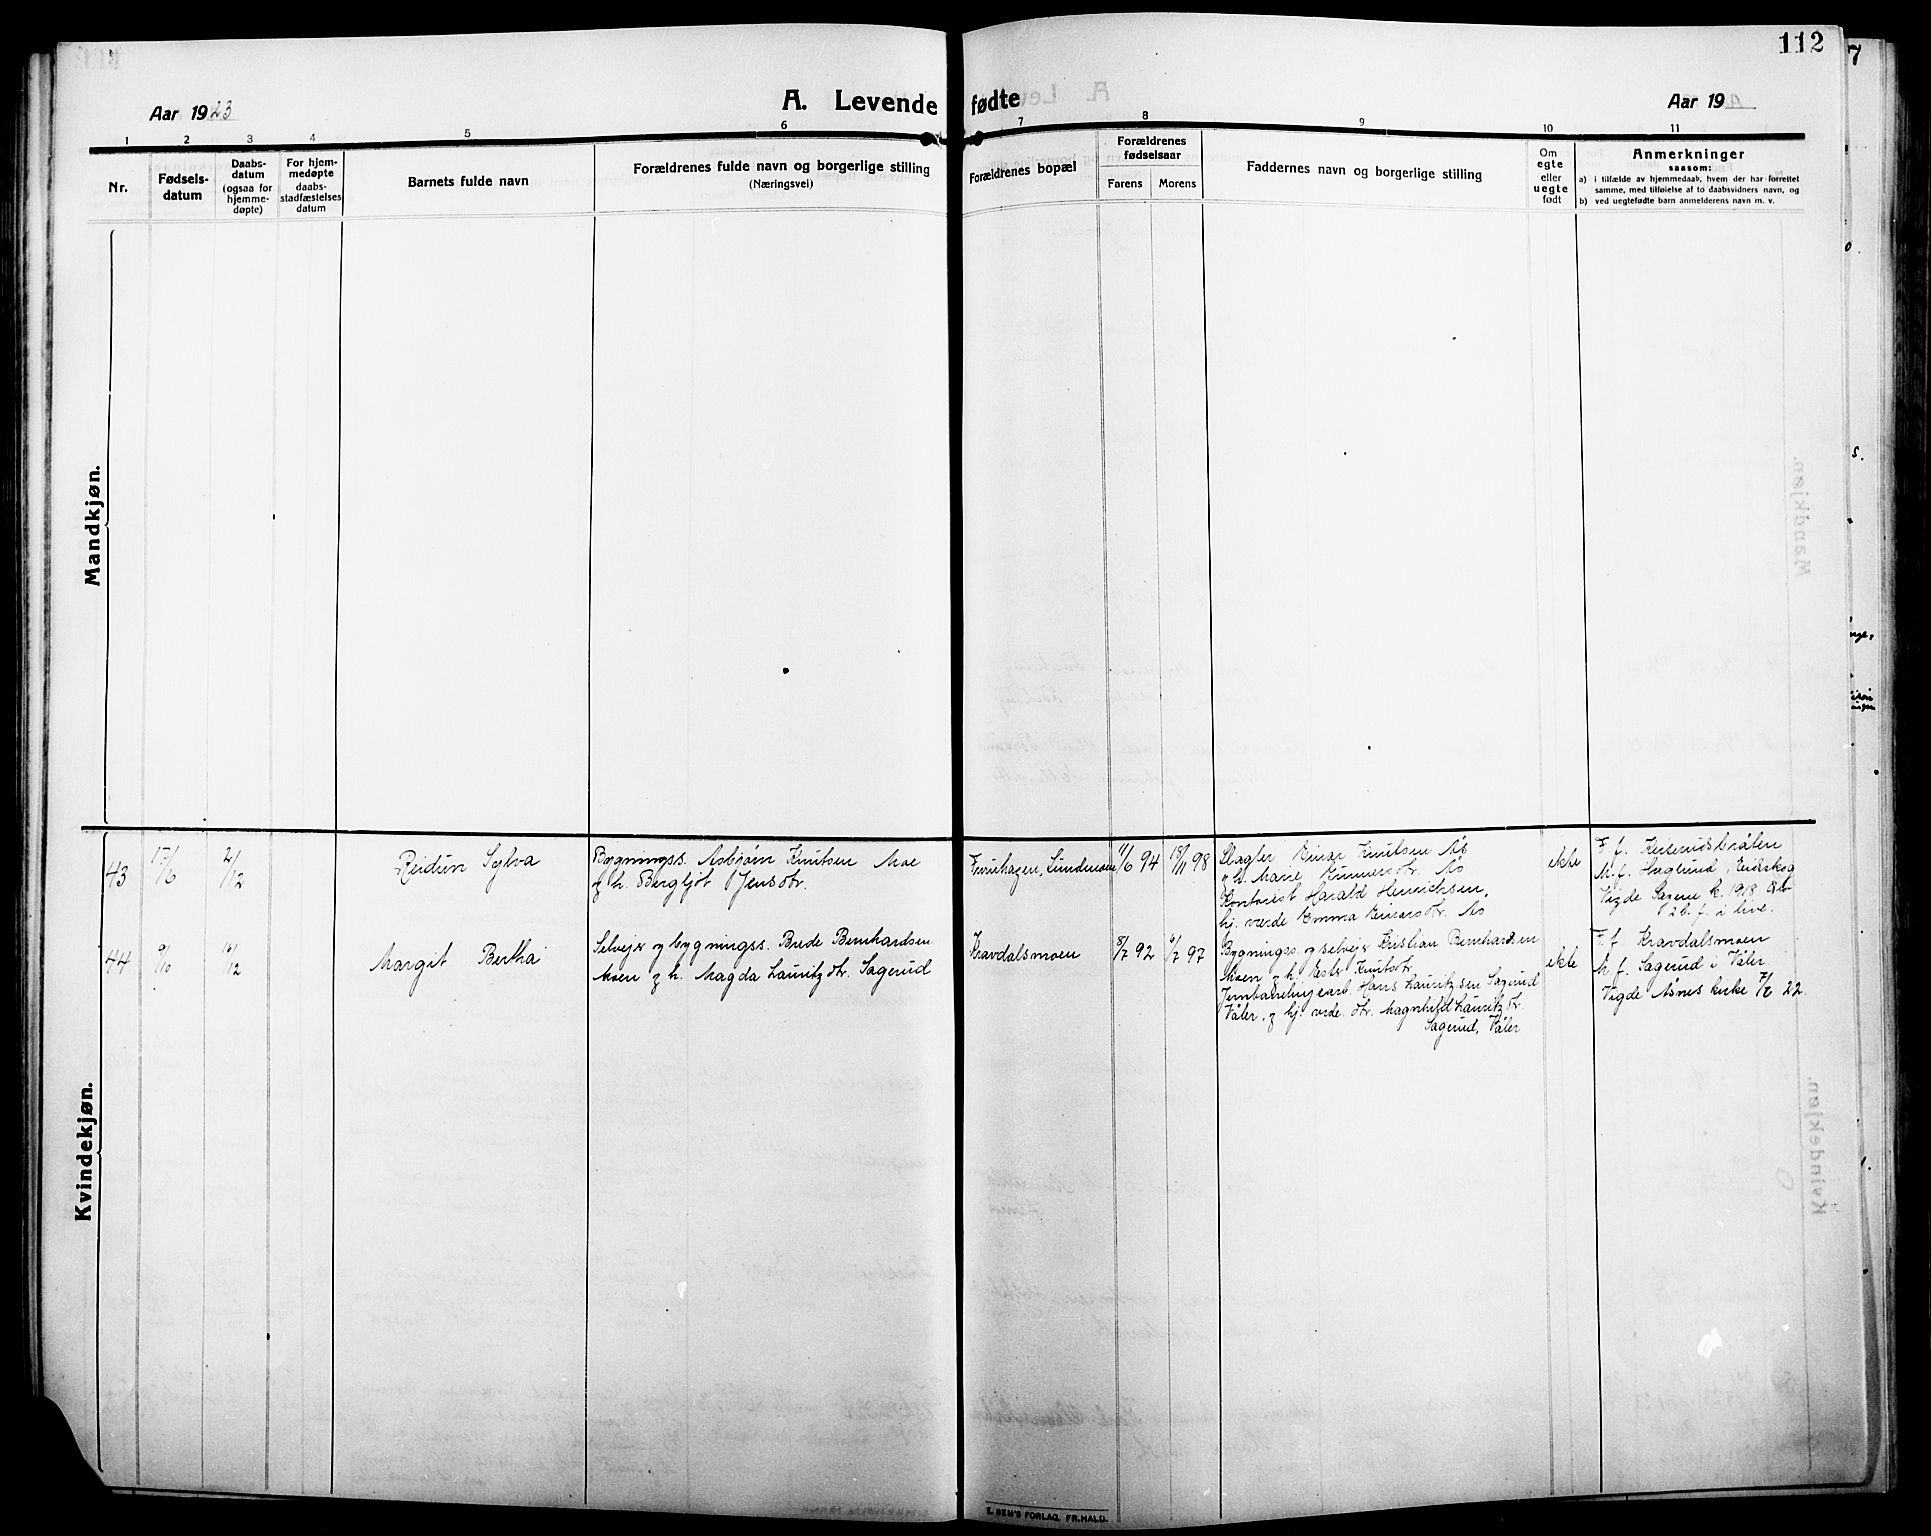 112
Aar 1923
A. Levende fødte
Aar 19
1 2 3 4 5 6 7 8 9 10 11
Nr.
Fødsels-
datum
Daabs-
datum
(ogsaa for
hjemme-
døpte)
For hjem-
medøpte
daabs-
stadfæstelses
datum
Barnets fulde navn
Forældrenes fulde navn og borgerlige stilling
(Næringsvei)
Forældrenes bopæl
Forældrenes
fødselsaar
Farens Morens
Faddernes navn og borgerlige stilling
Om
egte
eller
uegte
født
Anmerkninger
saasom:
a) i tilfælde av hjemmedaab, hvem der har forrettet
samme, med tilføielse af to daabsvidners navn, og
b) ved uegtefødte barn anmelderens navn m. v.
Mandkjøn.
Kvindekjøn.
43
17/6
2/12
Reidun Sylva
Bygningss. Asbjørn Knutsen Moe
og h. Bergljot Jensdtr.
Furuhagen, Sundemoen
11/6 94
18/11 98
Slagter Einar Knutsen Ås
og h. Marie Gunnersdtr. Ås
Kontorist Harald Henrichsen,
hj. værde Emma Einarsdtr. Ås
ekte
F. f.
M. f. Haglund, Eidskog
Vigde k. 1918
2 b. f. i live.
44
9/10
16/12
Margit Bertha
Selvejer og bygningss. Brede Bernhardsen
Moen og h. Magda Lauritzdtr. Sagerud
Kravdalsmoen
8/7 92
6/7 97
Bygningss. og selvejer Kristian Bernhardsen
Moen og h. Ester Knutsdtr.
Jernbanelinjearb. Hans Lauritzsen Sagerud
Våler, og hj. værde. dtr. Magnhild Lauritzdtr.
Sagerud, Våler
ekte
F. f. Kravdalsmoen
M. f. Sagerud i Våler
Vigde Åsnes kirke 7/7 22.
E. SEM'S FORLAG, FR.HALD.